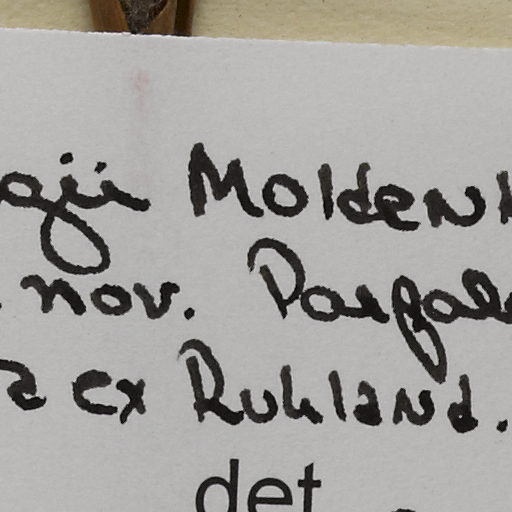 gii Moldenh
nov. Pargale
ex Ruhland.
det